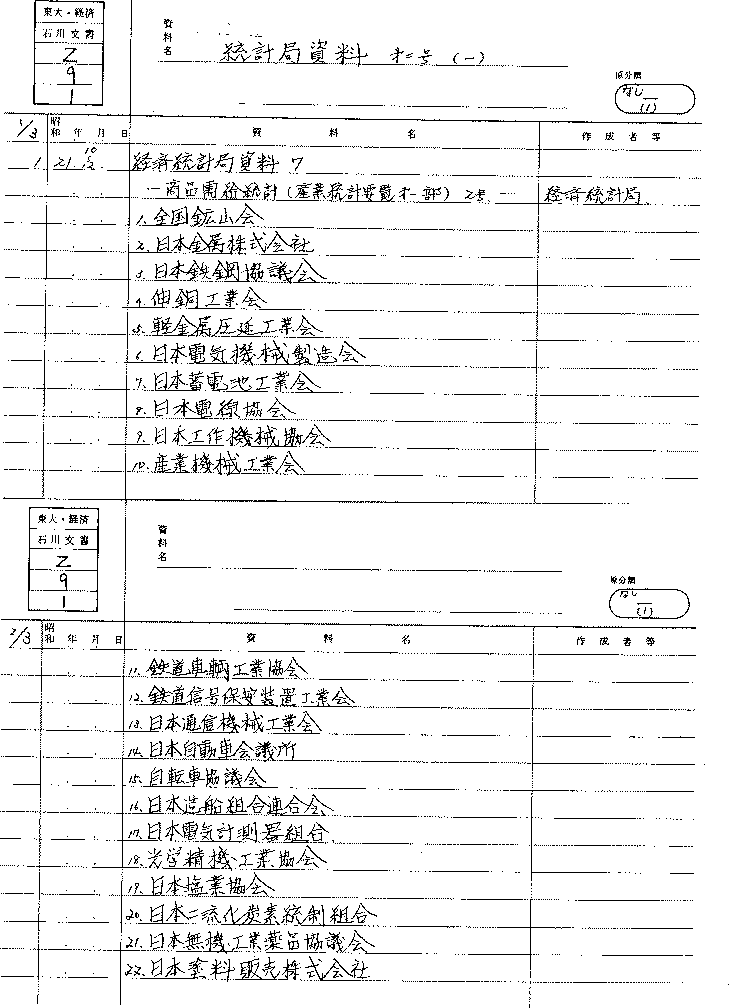 東大・経済
石川文書
Z
9
1
資料名
統計局資料 才二号 (一)
原分類
なし
(1)
1/3
昭和 年 月 日
資 料 名
作 成 者 等
1 21. 10
経済統計局資料 7
―商品別 統計(産業統計要覧 才一部) 2号―
経済統計局
1. 全国鉱山会
2. 日本金属株式会社
3. 日本鉄鋼協議会
4. 伸銅工業会
5. 軽金属圧延工業会
6. 日本電気機械製造会
7. 日本蓄電池工業会
8. 日本電線協会
9. 日本工作機械協会
10. 産業機械工業会
東大・経済
石川文書
Z
9
1
資料名
原分類
なし
(1)
2/3
昭和 年 月 日
資 料 名
作 成 者 等
11. 鉄道車輌工業協会
12. 鉄道信号保安装置工業会
13. 日本通信機械工業会
14. 日本自動車会議所
15. 自転車協議会
16. 日本造船組合連合会
17. 日本電気計測器組合
18. 光学精機工業協会
19. 日本塩業協会
20. 日本二流化炭素統制組合
21. 日本無機工業薬品協議会
22. 日本塗料販売株式会社